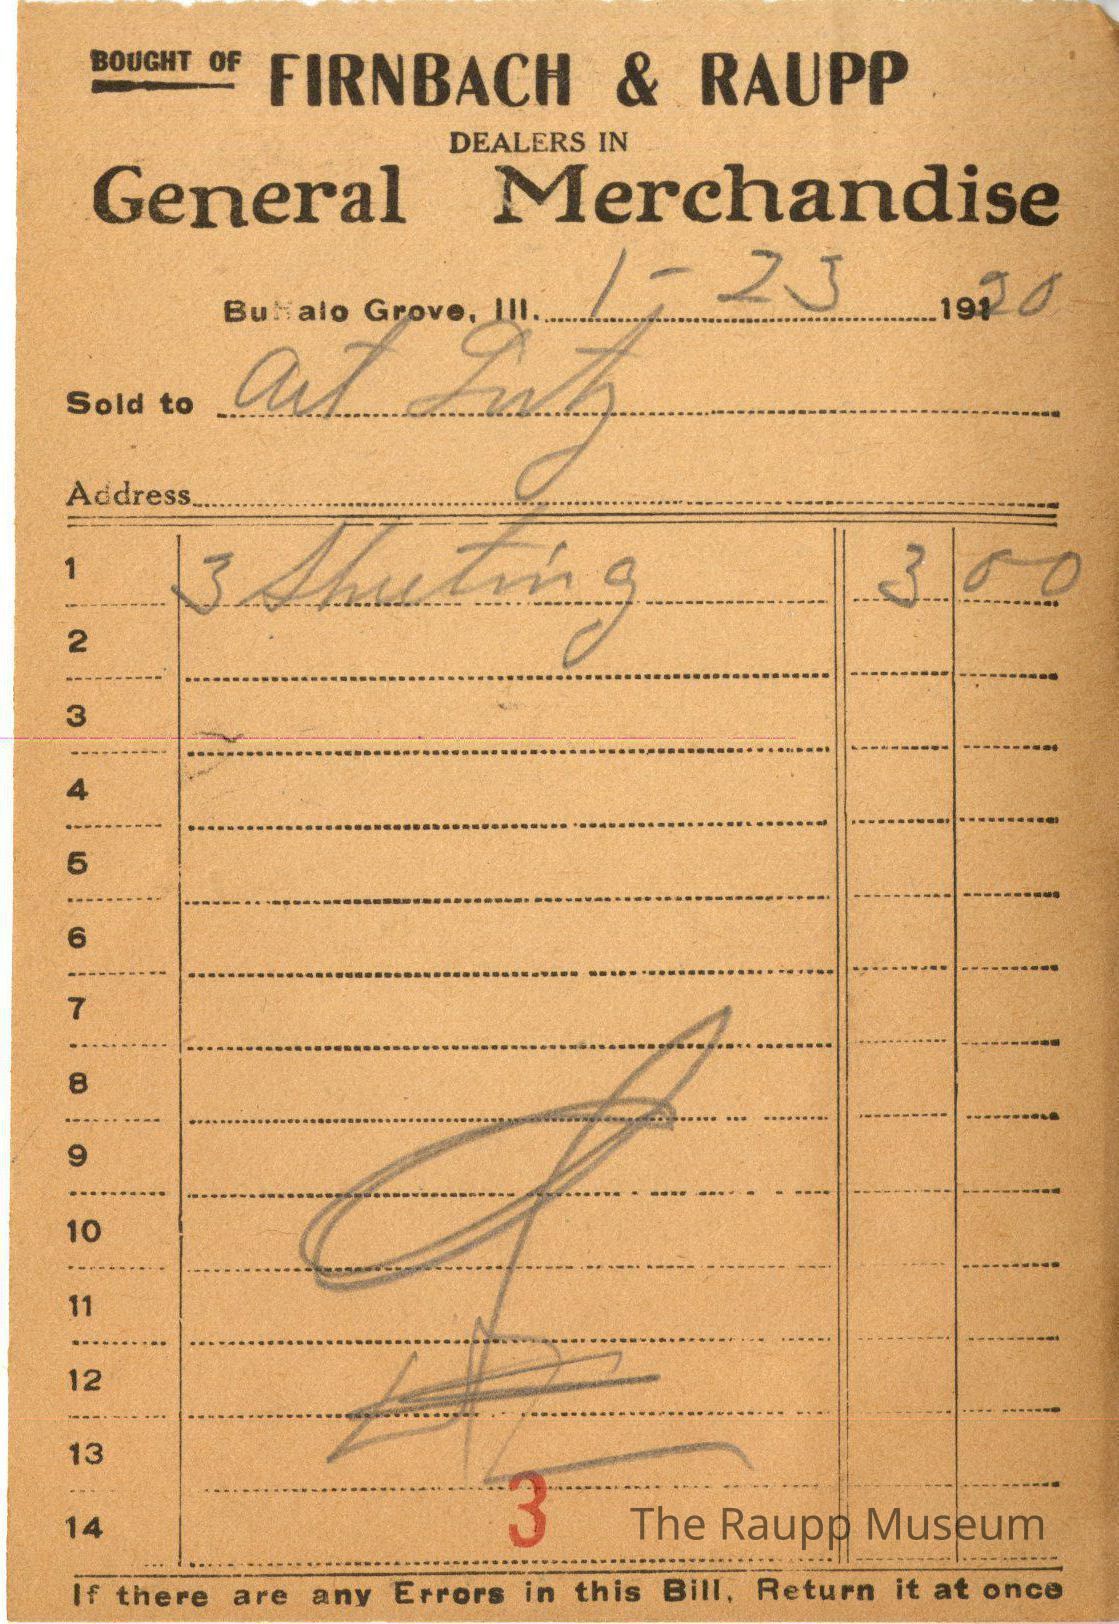 BOUGHT OF FIRNBACH & RAUPP
DEALERS IN
General Merchandise
Buffalo Grove, Ill. 1-23 1920
Sold to Art Lutz
Address
1 3 Sheeting 3 00
2
3
4
5
6
7
8
9
10
11
12
13
14
3
The Raupp Museum
If there are any Errors in this Bill, Return it at once